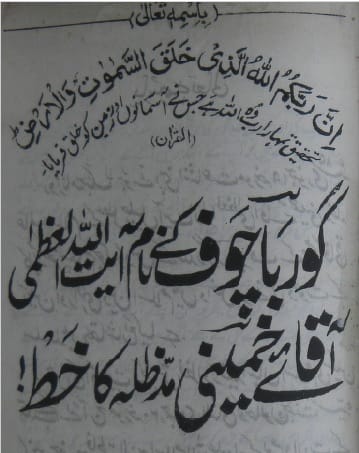 (باسمہ تعالیٰ)
اِنَّ رَبَّکُمُ اللّٰہُ الَّذِیْ خَلَقَ السَّمٰوٰتِ وَالْاَرْضَ ط
تحقیق تمہارا رب وہ اللہ ہے جس نے آسمانوں اور زمین کو خلق فرمایا۔
(القرآن)
گورباچوف کے نام آیت اللہ العظمیٰ
آقائے خمینی مدظلہ کا خط!